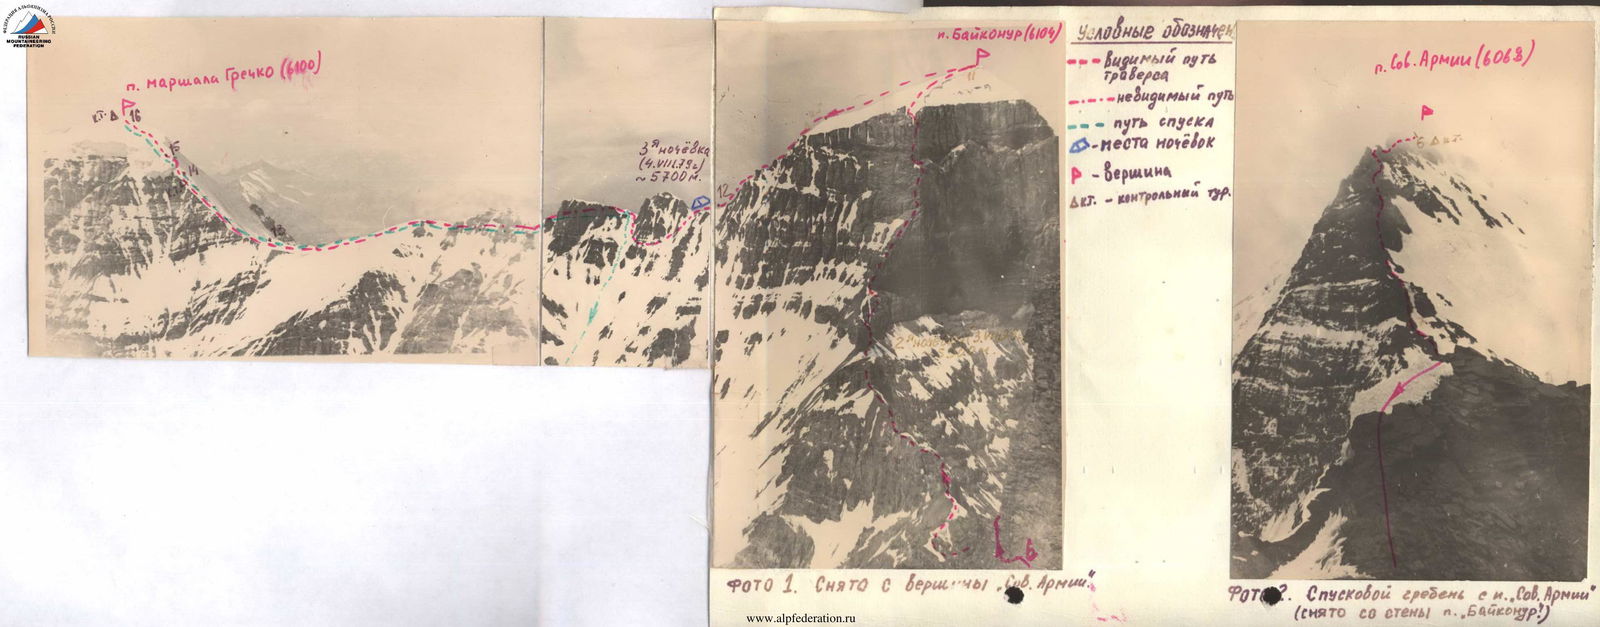 ФЕДЕРАЦИЯ АЛЬПИНИЗМА РОССИИ
RUSSIAN
MOUNTAINEERING
FEDERATION
п. маршала Гречко (6100)
к.т.
16
15
14
13
3я ночёвка
(4.VIII.79г)
~5700м.
12
п. Байконур (6104)
11
2я
Условные обозначен
- видимый путь
траверса
- невидимый путь
- путь спуска
- места ночёвок
- вершина
кт. - контрольный тур.
п. Сов. Армии (6068)
6
к.т.
Фото 1. Снято с вершины „Сов. Армии".
Фото 2. Спусковой гребень с п. „Сов. Армии"
(снято со стены п. „Байконур!)
www.alpfederation.ru